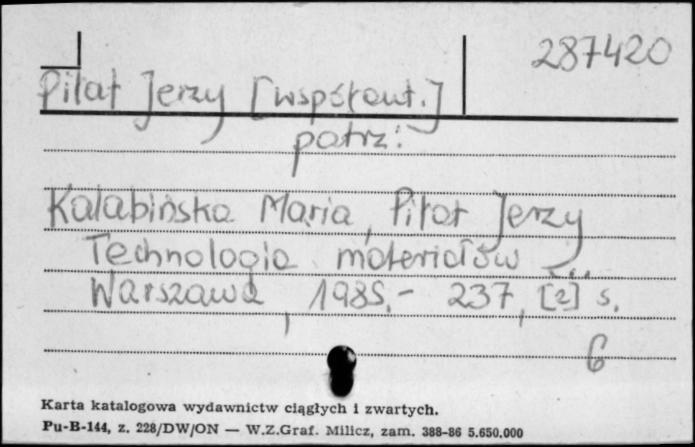 287420
Piłat Jerzy [współaut.]
patrz:
Kalabińska Maria, Piłat Jerzy
Technologia materiałów ...
Warszawa, 1985.- 237, [2] s.
6
Karta katalogowa wydawnictw ciągłych i zwartych.
Pu-B-144, z. 228/DW/ON — W.Z.Graf. Milicz, zam. 388-86 5.650.000